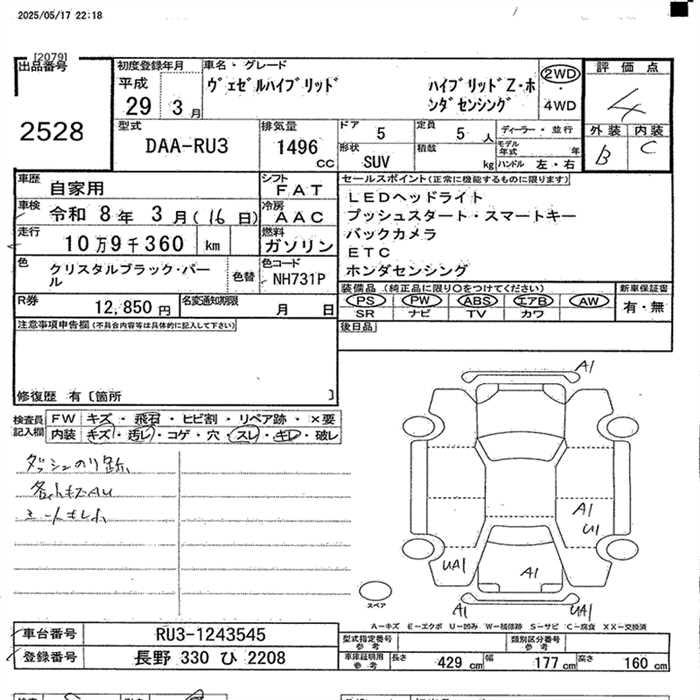 2025/05/17 22:18
[2079]
出品番号
2528
初度登録年月
平成
29 3 月
車名・グレード
ヴェゼルハイブリッド ハイブリッドZ・ホンダセンシング
2WD
・
4WD
評価点
4
外装 内装
B C
型式
DAA-RU3
排気量
1496 cc
ドア 5
定員 5 人
形状 SUV
積載 kg
ディーラー・並行
モデル年式 年
ハンドル 左・右
車歴 自家用
シフト FAT
車検 令和 8年 3月(16日)
冷房 AAC
走行 10万9千360 km
燃料 ガソリン
色 クリスタルブラック・パール
色替
色コード NH731P
R券 12,850円
名変通知期限 月 日
セールスポイント(正常に機能するものに限ります)
LEDヘッドライト
プッシュスタート・スマートキー
バックカメラ
ETC
ホンダセンシング
装備品(純正品に限り○をつけてください)
PS PW ABS エアB AW
SR ナビ TV カワ
新車保証書
有・無
後日品
注意事項申告欄(不具合内容等は具体的に記入して下さい)
修復歴 有〔箇所 〕
検査員記入欄
FW キズ・飛石・ヒビ割・リペア跡・×要
内装 キズ・汚レ・コゲ・穴・スレ・キレ・破レ
ダッシュのり跡
A1
A1
U1
UA1
A1
A1
UA1
スペア
A−キズ E−エクボ U−凹み W−補修跡 S−サビ C−腐食 XX−交換済
車台番号 RU3-1243545
登録番号 長野 330 ひ 2208
型式指定番号 参考
類別区分番号 参考
車庫証明用 参考
長さ 429 cm 幅 177 cm 高さ 160 cm